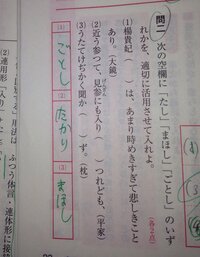 問二 次の空欄に「たし」「まほし」「ごとし」のいず
れかを、適切に活用させて入れよ。
(各2点)
(1)楊貴妃( )は、あまり時めきすぎて悲しきこと
あり。(大鏡)
(2)近う参つて、見参にも入り( )つれども、(平家)
げんざん
(3)うたてけぢかく聞か( )ず。(枕)
(1)
ごとし
(2)
たかり
(3)
まほし
(2)連用形「入り」
ふつう体言・連体形に接